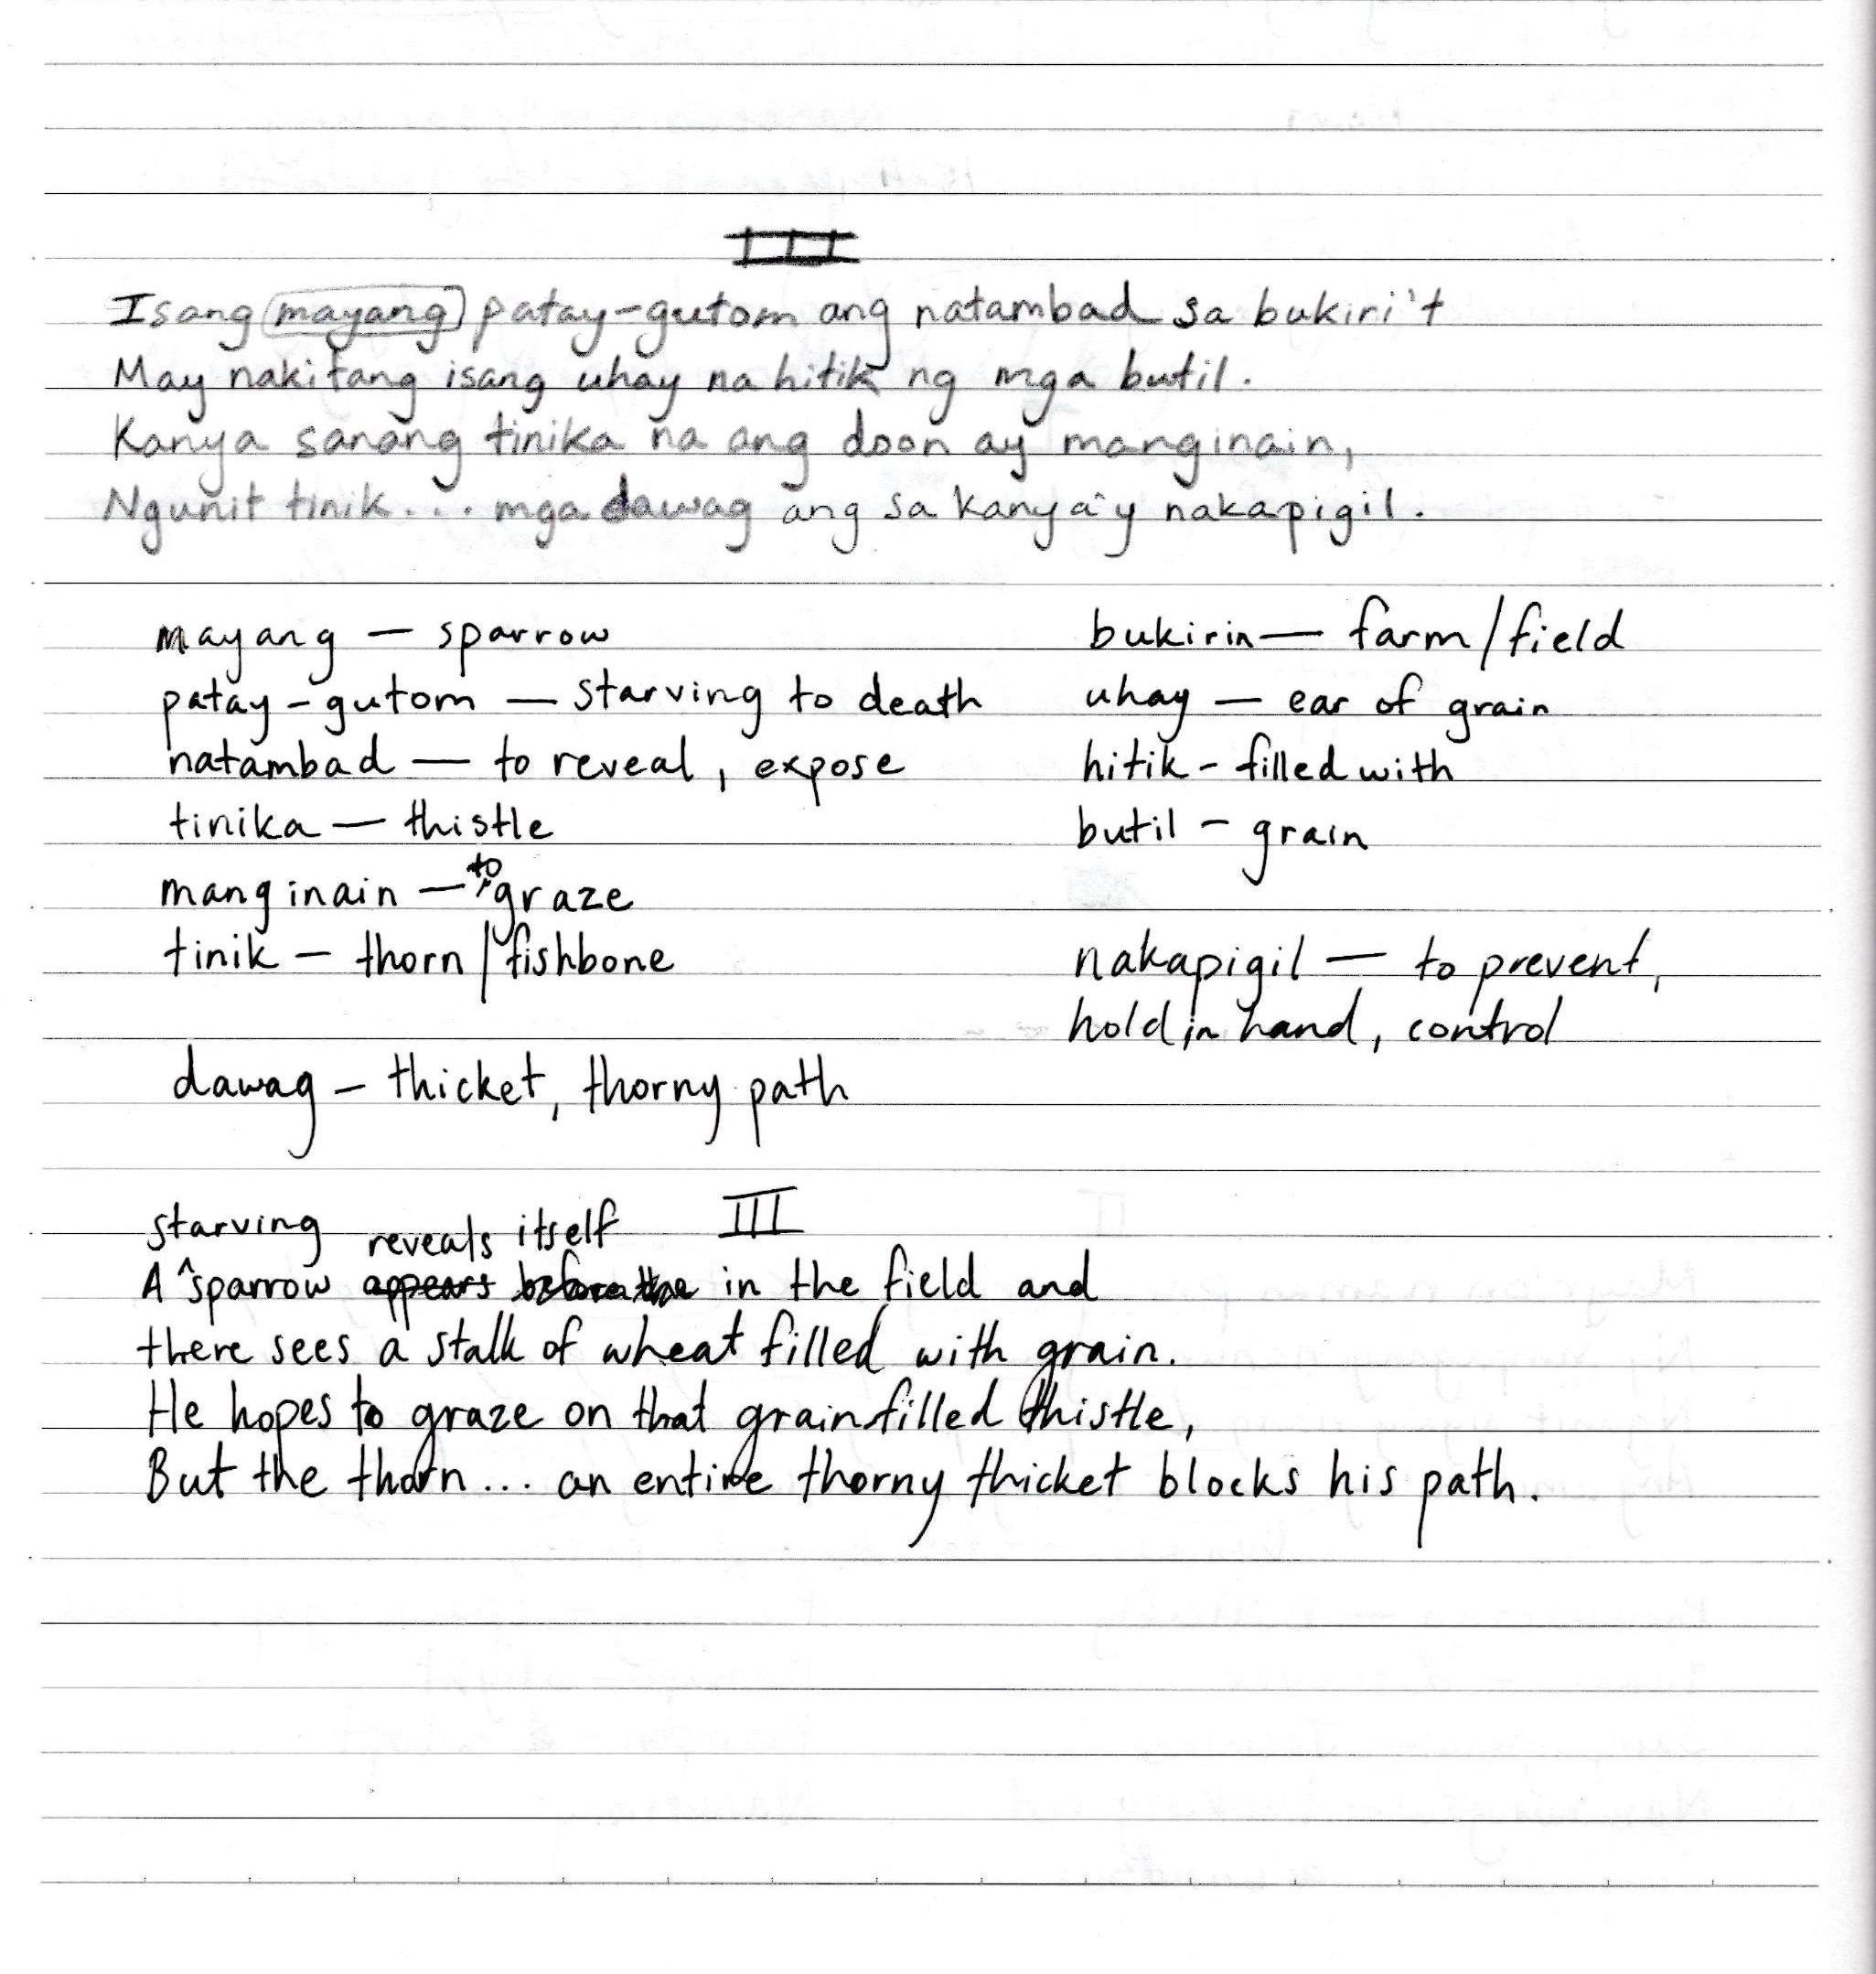 III
Isang mayang patay-gutom ang natambad sa bukiri't
May nakitang isang uhay na hitik ng mga butil.
Kanya sanang tinika na ang doon ay manginain,
Ngunit tinik... mga dawag ang sa kanya'y nakapigil.
mayang — sparrow
patay-gutom — starving to death
natambad — to reveal, expose
tinika — thistle
manginain — to graze
tinik — thorn/fishbone
dawag — thicket, thorny path
bukirin — farm/field
uhay — ear of grain
hitik - filled with
butil - grain
nakapigil — to prevent,
hold in hand, control
III
starving reveals itself
A ^sparrow appears before the in the field and
there sees a stalk of wheat filled with grain.
He hopes to graze on that grainfilled thistle,
But the thorn... an entire thorny thicket blocks his path.